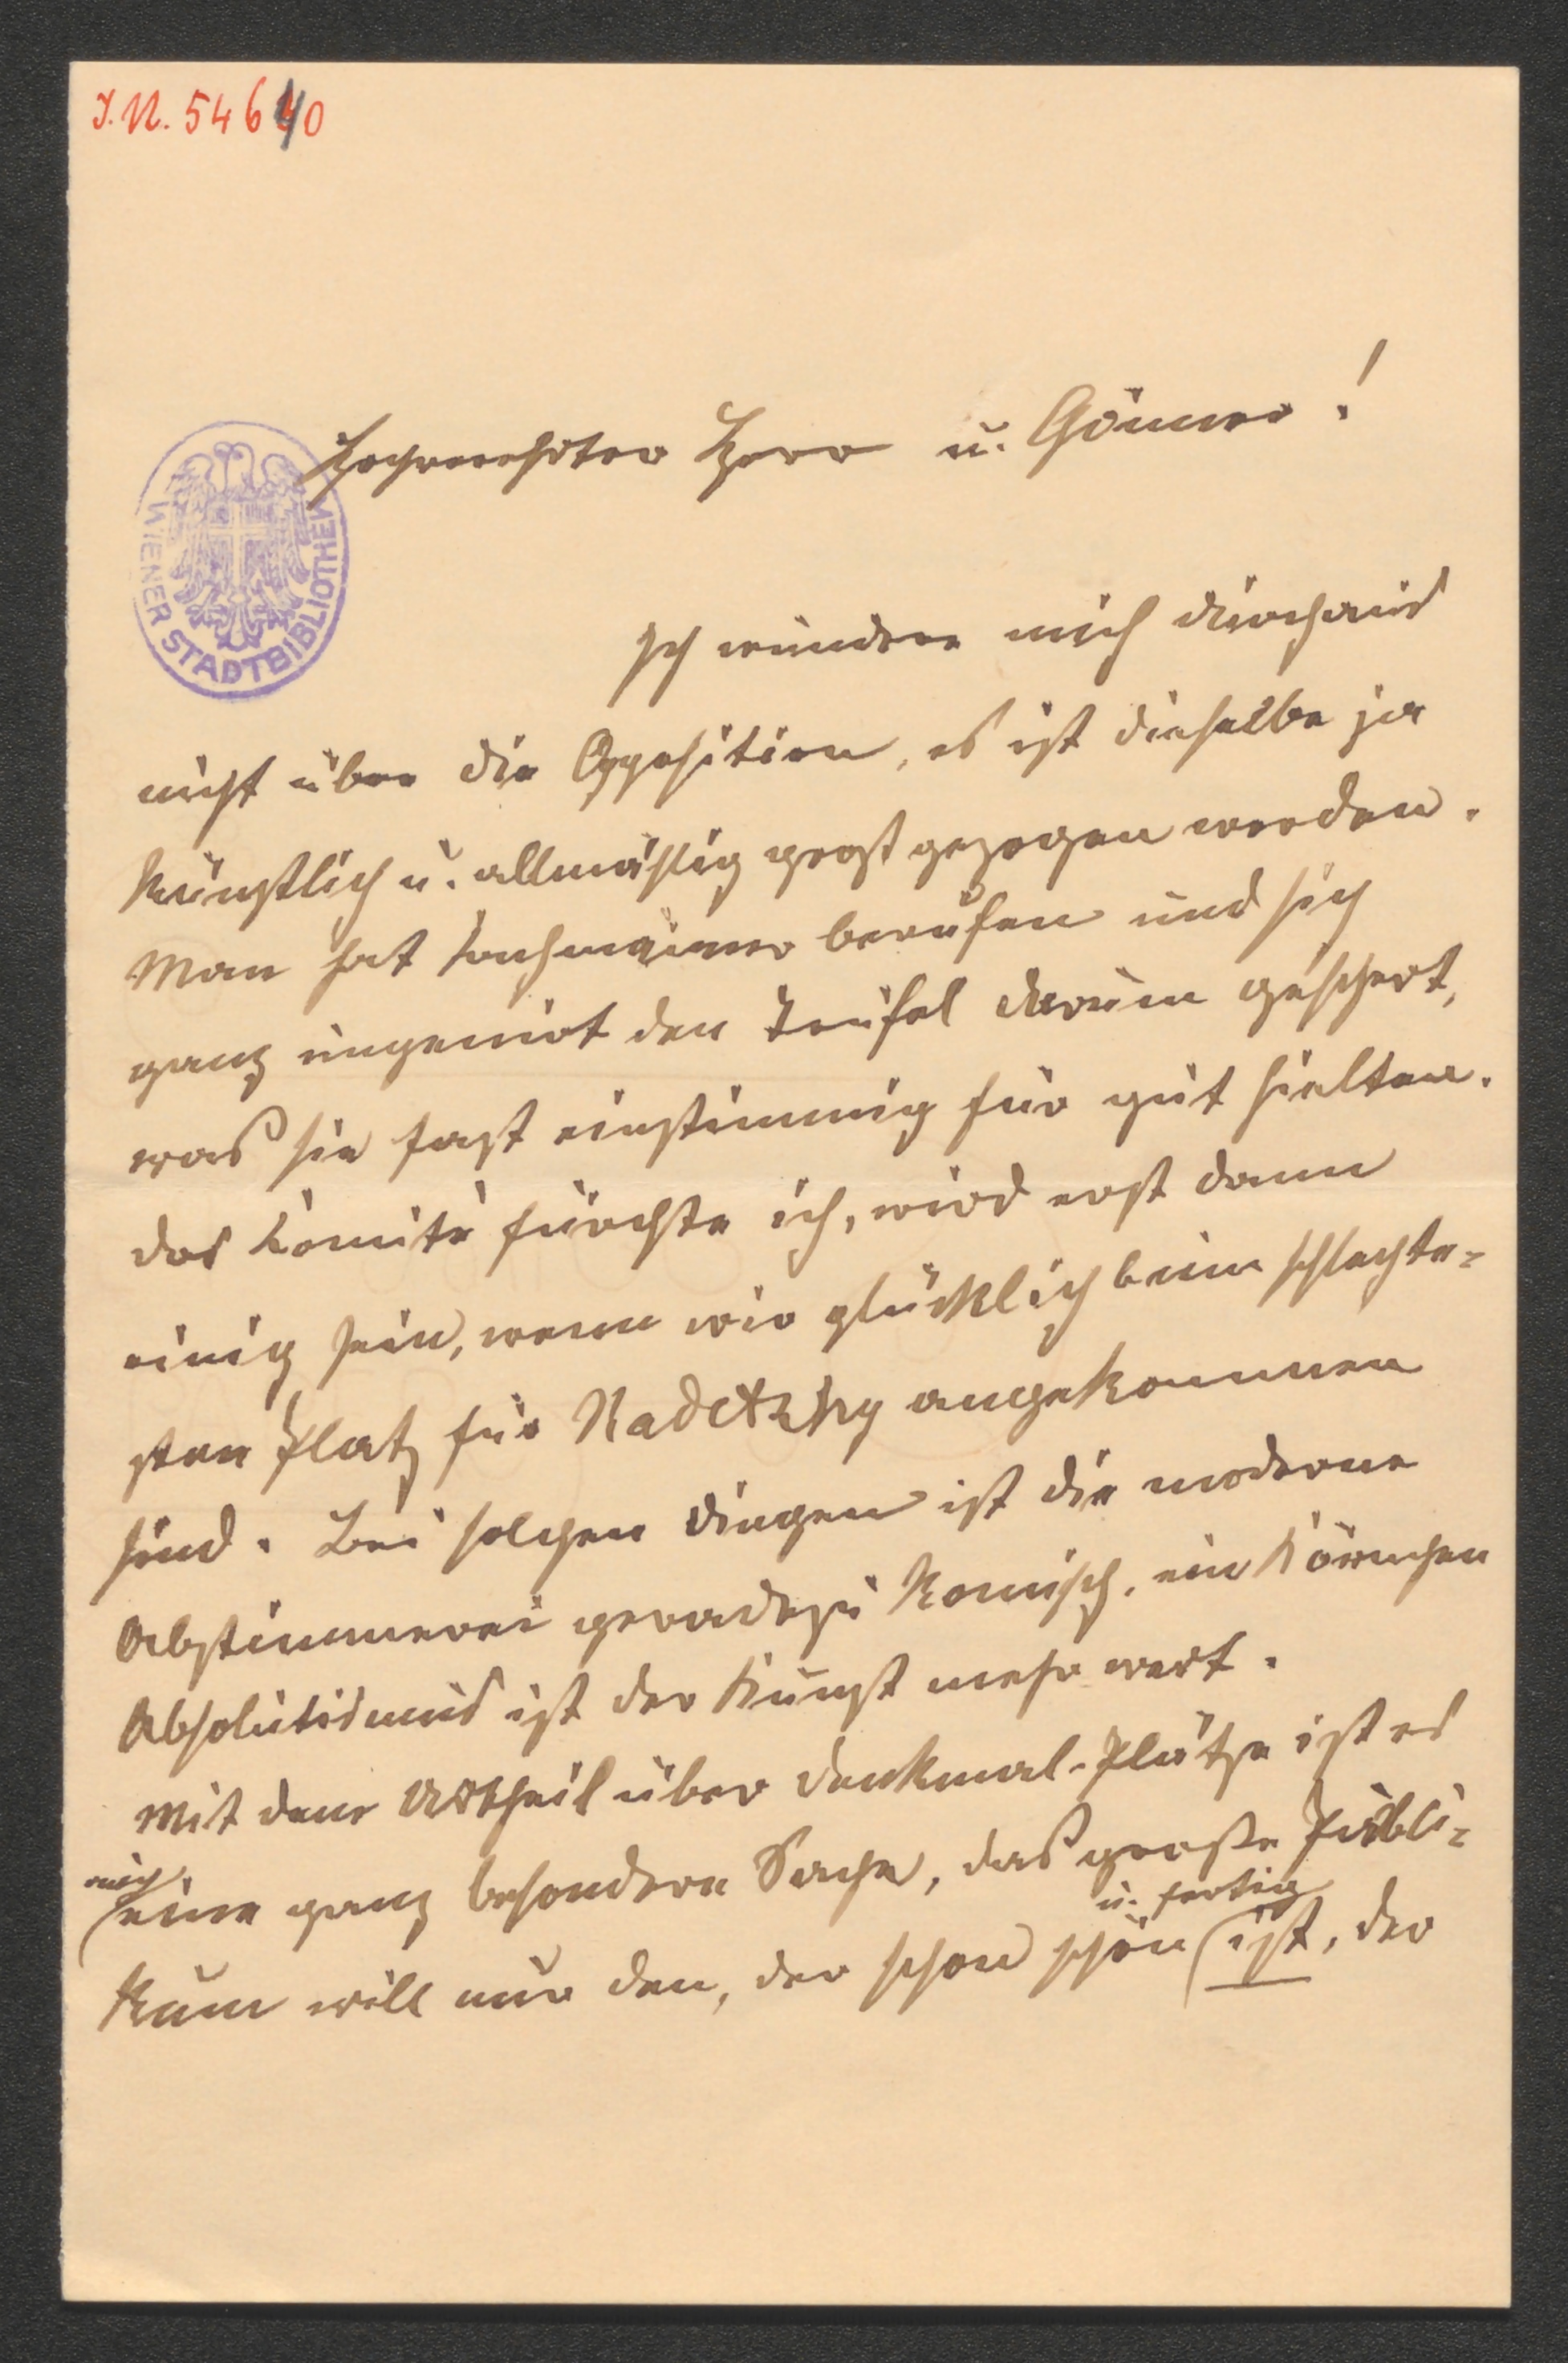 J.N. 54640
Hochverehrter Herr u. Gönner!
WIENER STADTBIBLIOTHEK
Ich wundere mich durchaus
nicht über die Opposition, es ist dieselbe ja
künstlich u. allmählig gross gezogen worden.
Man hat Fachmänner berufen und sich
ganz ungenirt den Teufel darum geschert,
was sie fast einstimmig für gut hielten.
das Comité fürchte ich, wird erst dann
einig sein, wenn wir glücklich beim schlechte=
sten Platz für Radetzky angekommen
sind. Bei solchen Dingen ist die moderne
Abstimmerei geradezu komisch, ein Körnchen
Absolutismus ist der Kunst mehr wert.
Mit dem Urtheil über Denkmal-Plätze ist es
auch
eine ganz besondere Sache, das große Publi=
u. fertig
kum will nur den, der schon schön ist, der